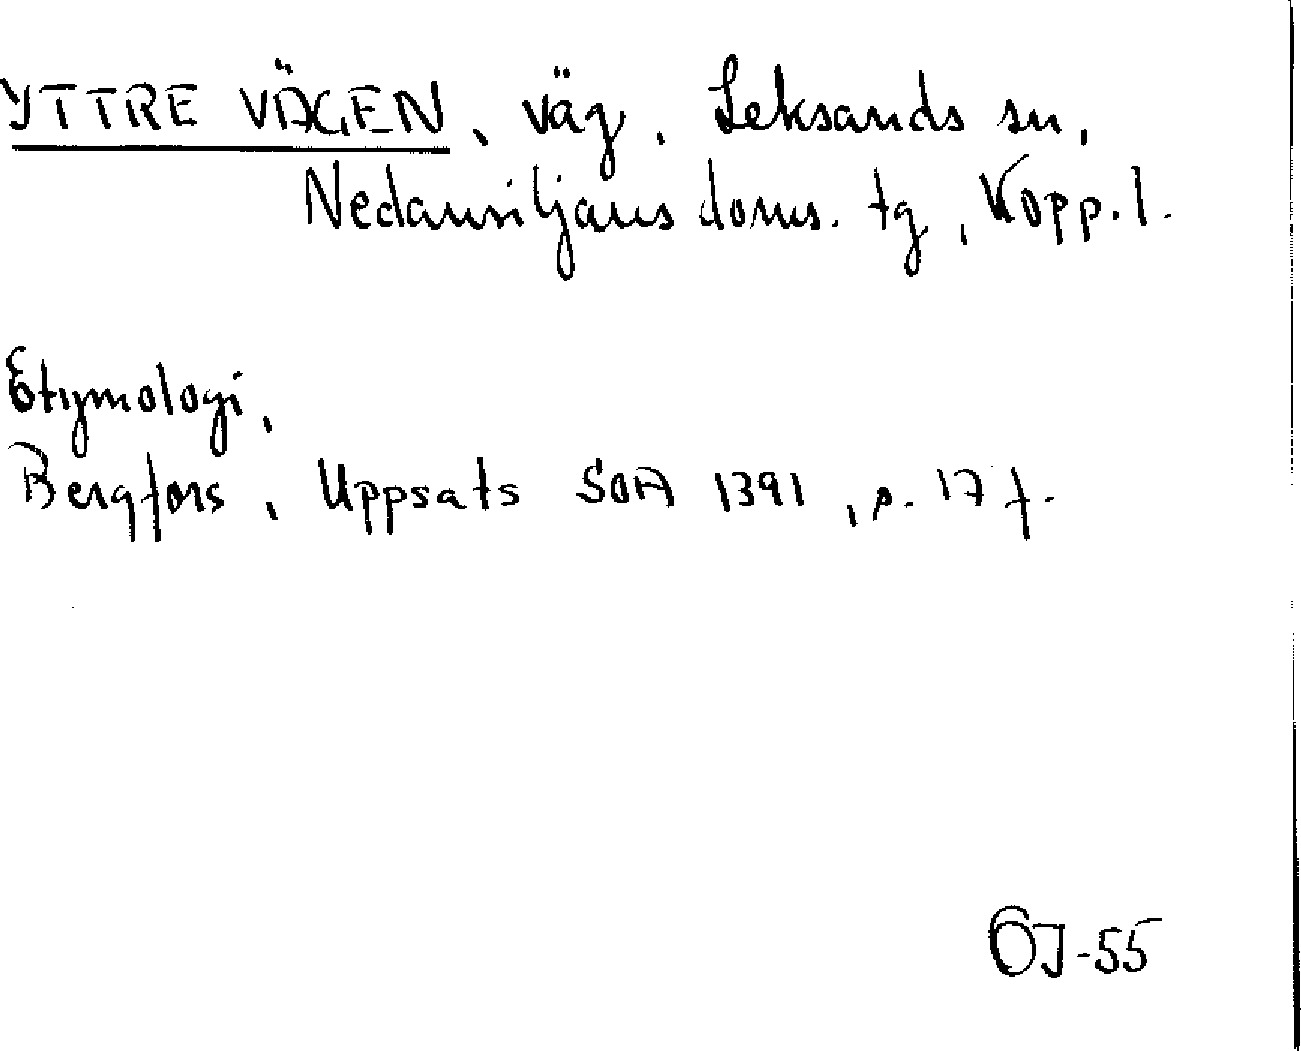 YTTRE VÄGEN, väg, Leksands sn,
Nedansiljans doms. tg, Kopp. l.
Etymologi,
Bergfors, Uppsats SOA 1391, s. 17 f.
ÖJ-55